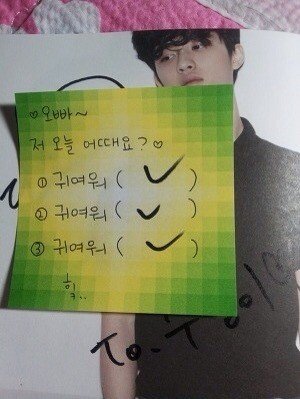 ♡오빠~
저 오늘 어때요?♡
① 귀여워 ( ✓ )
② 귀여워 ( ✓ )
③ 귀여워 ( ✓ )
힉..